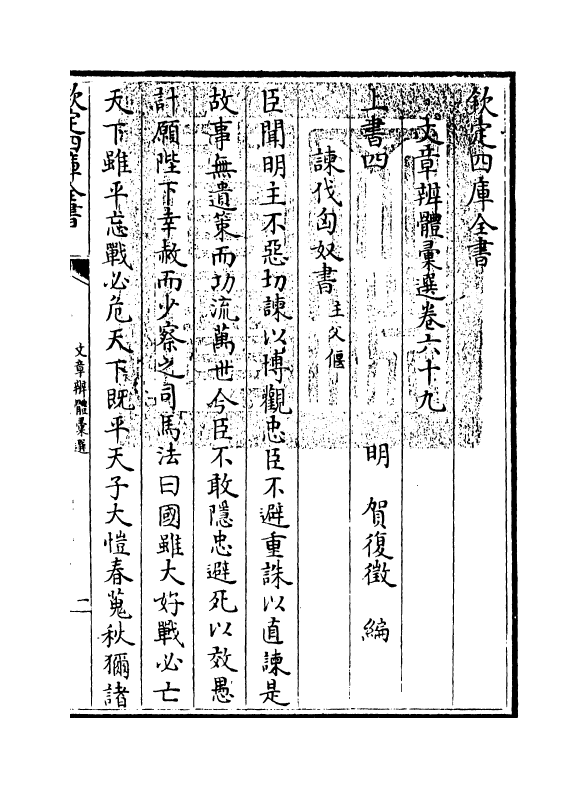 欽定四庫全書
文章辨體彚選卷六十九
明 賀復徵 編
上書四
諫伐匈奴書 主父偃
臣聞明主不惡切諫以博觀忠臣不避重誅以直諫是
故事無遺策而功流萬世今臣不敢隱忠避死以效愚
計願陛下幸赦而少察之司馬法曰國雖大好戰必亡
天下雖平忘戰必危天下既平天子大愷春蒐秋獮諸
欽定四庫全書
文章辨體彚選
一